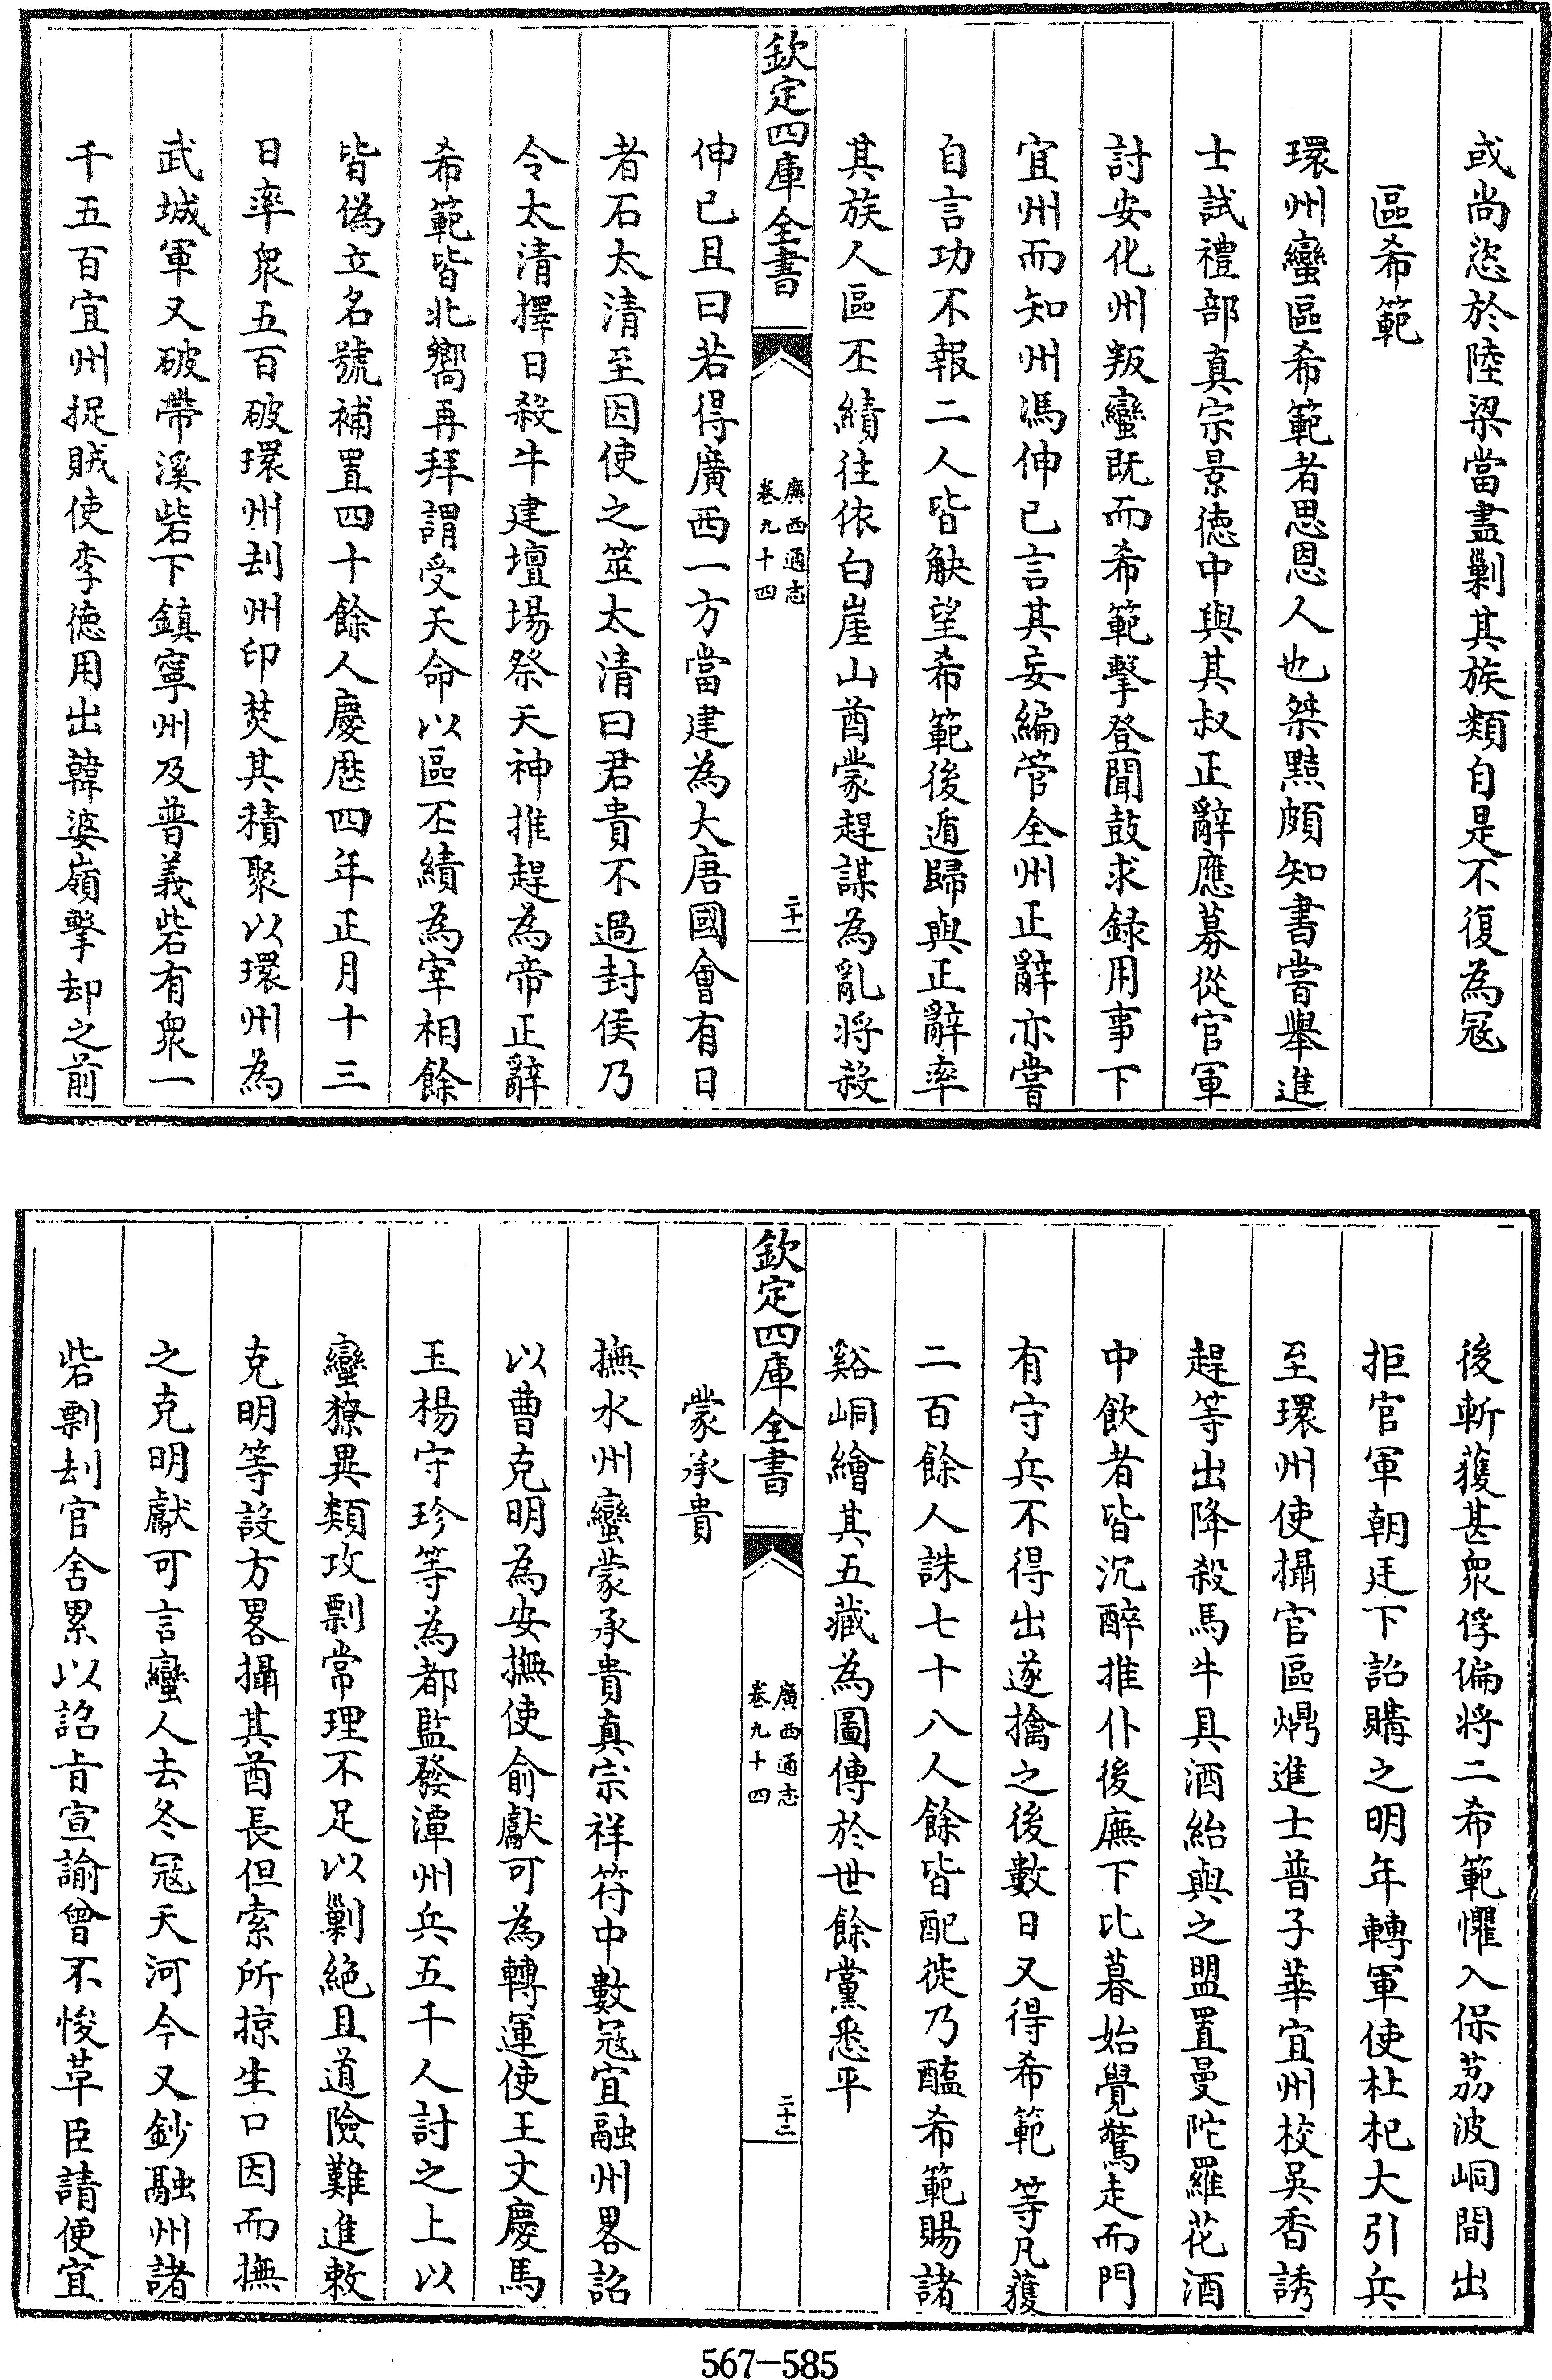 或尚恣於陸梁當盡剿其族類自是不復為冦
區希範
環州蠻區希範者思恩人也桀黠頗知書嘗舉進
士試禮部真宗景徳中與其叔正辭應募從官軍
討安化州叛蠻既而希範擊登聞鼓求録用事下
宜州而知州馮伸已言其妄編管全州正辭亦嘗
自言功不報二人皆觖望希範後遁歸與正辭率
其族人區丕績往依白崖山酋蒙趕謀為亂将殺
欽定四庫全書
廣西通志
卷九十四
二十一
伸已且曰若得廣西一方當建為大唐國會有日
者石太清至因使之筮太清曰君貴不過封侯乃
令太清擇日殺牛建壇場祭天神推趕為帝正辭
希範皆北嚮再拜謂受天命以區丕績為宰相餘
皆偽立名號補置四十餘人慶厯四年正月十三
日率衆五百破環州刦州印焚其積聚以環州為
武城軍又破帶溪砦下鎮寧州及普義砦有衆一
千五百宜州捉賊使李徳用出韓婆嶺擊却之前
後斬獲甚衆俘偏将二希範懼入保茘波峒間出
拒官軍朝廷下詔購之明年轉軍使杜杞大引兵
至環州使攝官區㷼進士普子華宜州校吳香誘
趕等出降殺馬牛具酒紿與之盟置曼陀羅花酒
中飲者皆沉醉推仆後廡下比暮始覺驚走而門
有守兵不得出遂擒之後數日又得希範等凡獲
二百餘人誅七十八人餘皆配徙乃醢希範賜諸
谿峒繪其五藏為圖傳於世餘黨悉平
欽定四庫全書
廣西通志
卷九十四
二十二
蒙承貴
撫水州蠻蒙承貴真宗祥符中數冦宜融州畧詔
以曹克明為安撫使俞獻可為轉運使王文慶馬
玉楊守珍等為都監發潭州兵五千人討之上以
蠻獠異類攻剽常理不足以剿絶且道險難進敕
克明等設方畧攝其酋長但索所掠生口因而撫
之克明獻可言蠻人去冬冦天河今又鈔融州諸
砦剽刦官舍累以詔㫖宣諭曾不悛革臣請便宜
567—585